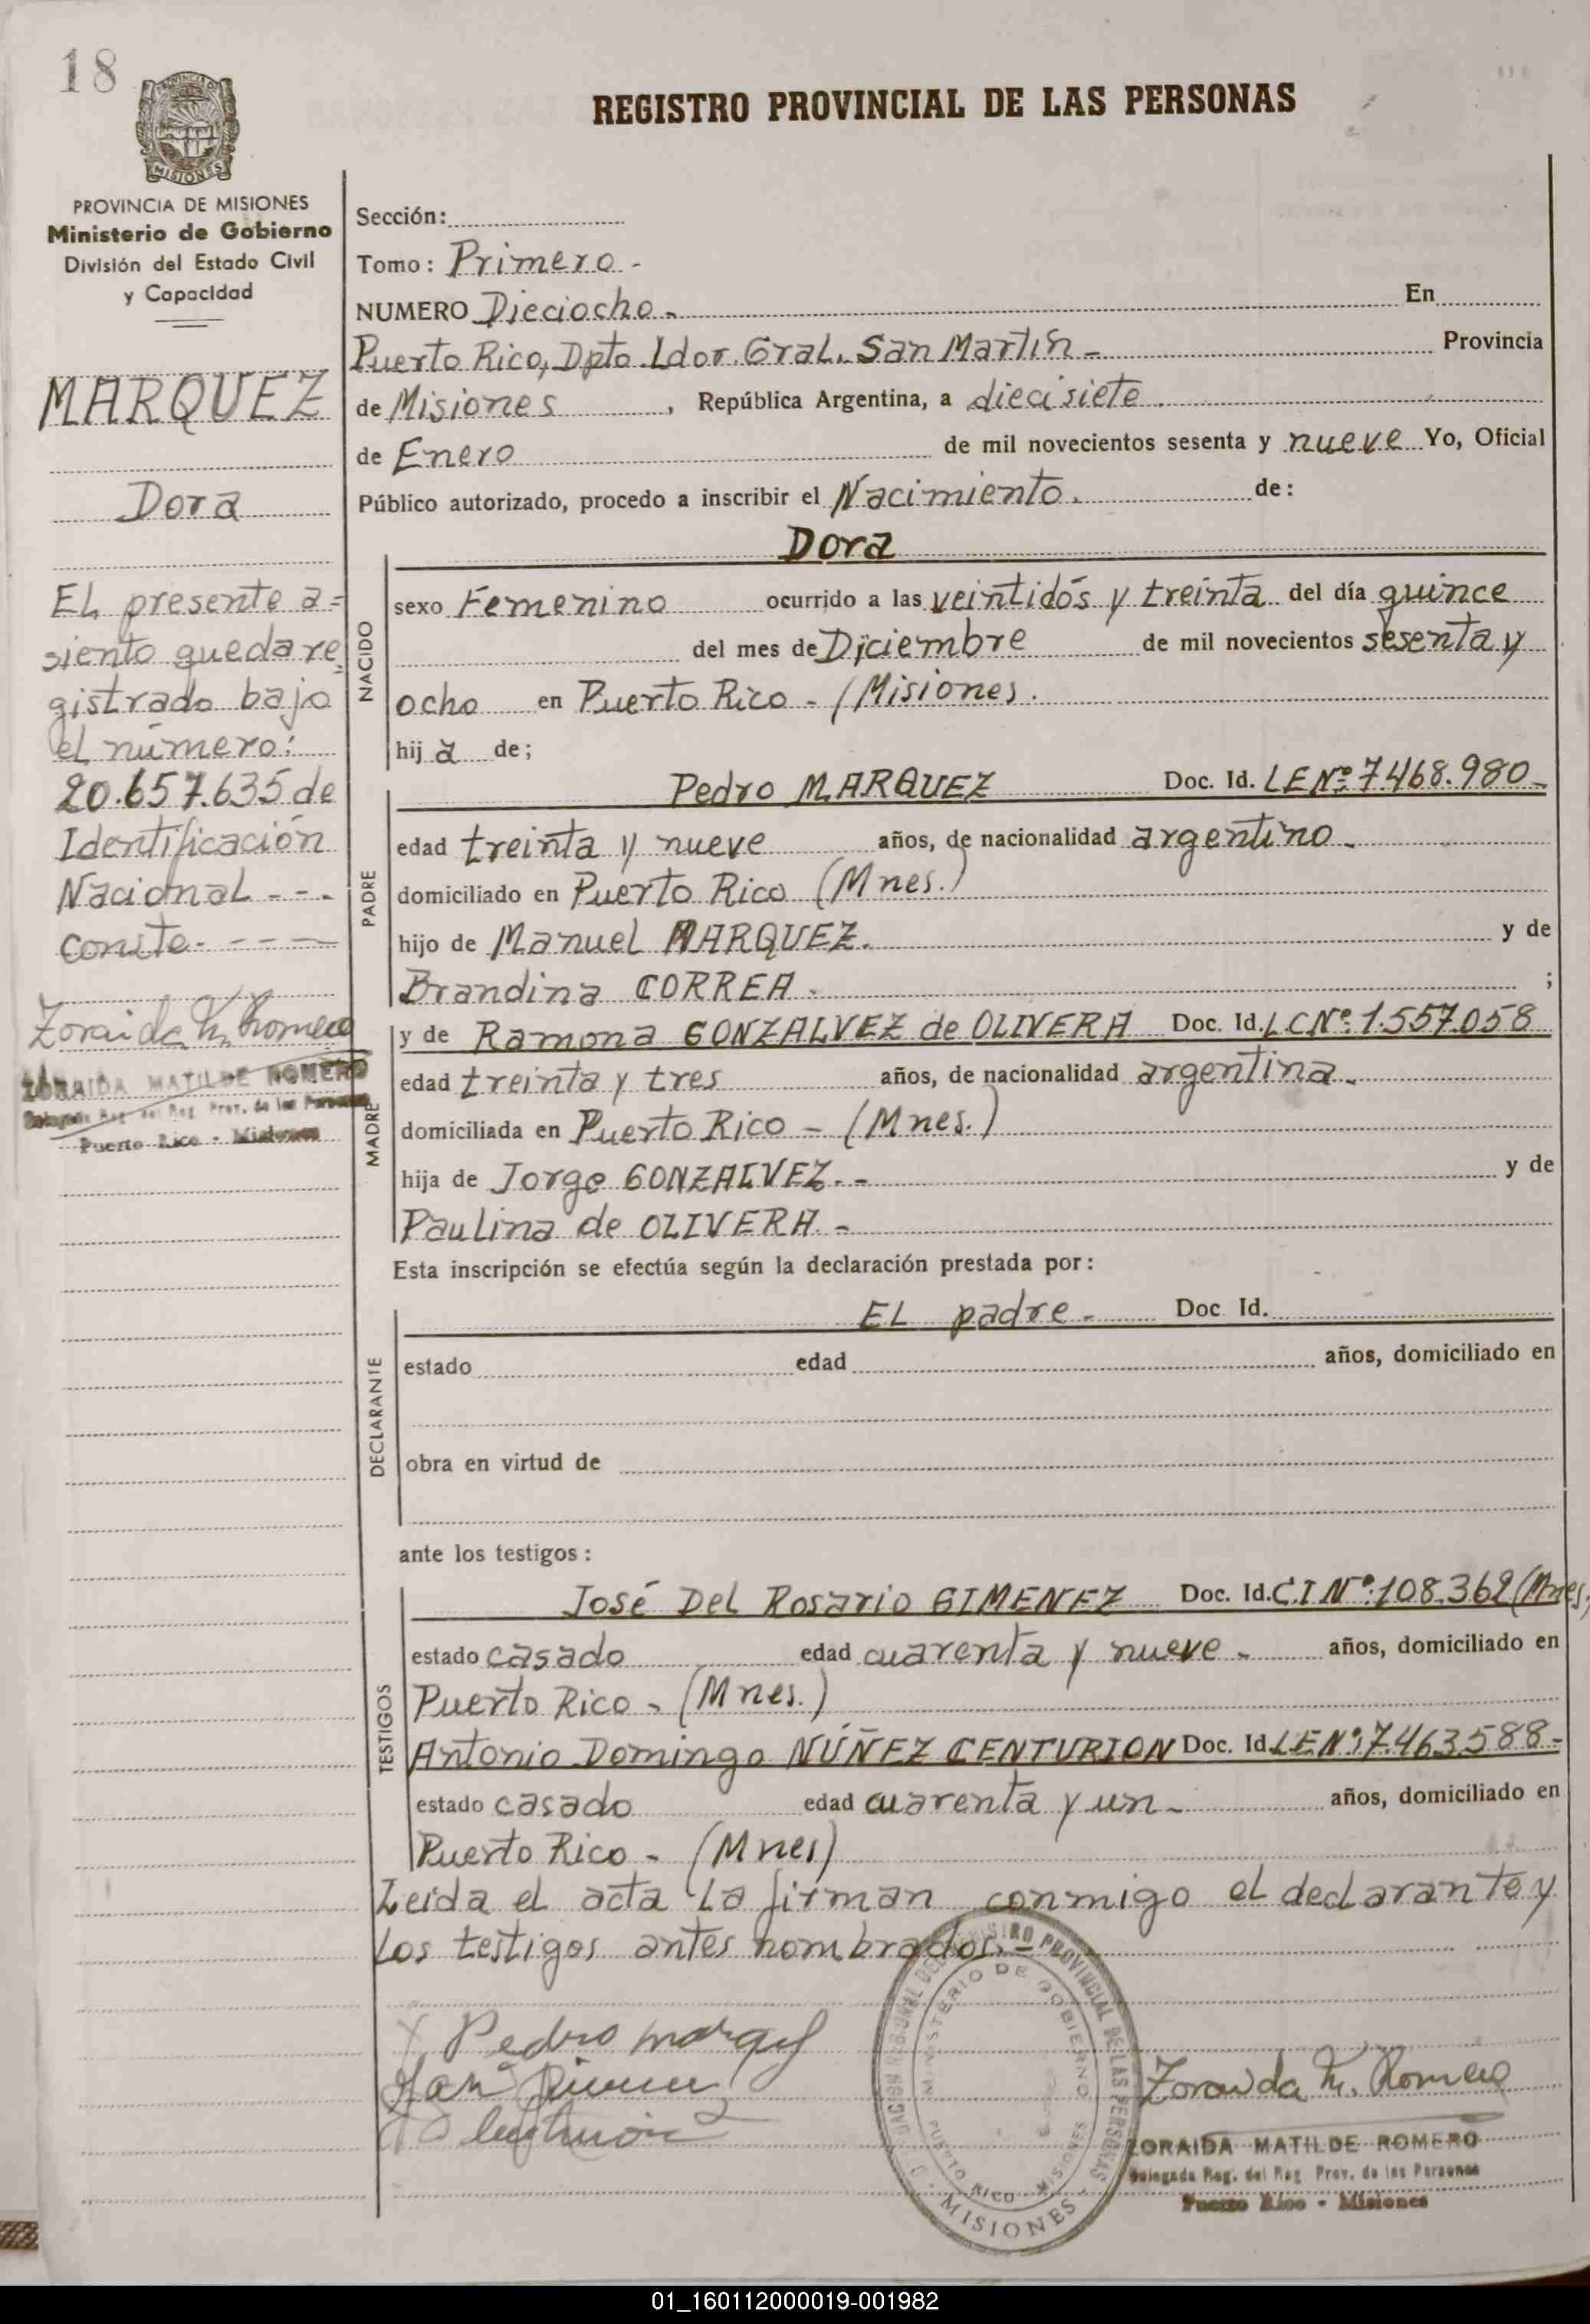 18
PROVINCIA DE
MISIONES
REGISTRO PROVINCIAL DE LAS PERSONAS
PROVINCIA DE MISIONES
Ministerio de Gobierno
División del Estado Civil
y Capacidad
MARQUEZ
Dora
El presente a=
siento queda re
gistrado bajo
el número:
20.657.635 de
Identificación
Nacional - - -
conste. - - -
Zoraida M. Romero
ZORAIDA MATILDE ROMERO
Delegada Reg. del Reg. Prov. de las Personas
Puerto Rico - Misiones
Sección:
Tomo: Primero -
NUMERO Dieciocho - En
Puerto Rico, Dpto. Ldor. Gral. San Martín - Provincia
de Misiones , República Argentina, a diecisiete
de Enero de mil novecientos sesenta y nueve Yo, Oficial
Público autorizado, procedo a inscribir el Nacimiento. de:
Dora
NACIDO
sexo Femenino ocurrido a las veintidós y treinta del día quince
del mes de Diciembre de mil novecientos sesenta y
ocho en Puerto Rico - (Misiones.
hij a de;
Pedro MARQUEZ Doc. Id. LE Nº: 7.468.980-
PADRE
edad treinta y nueve años, de nacionalidad argentino -
domiciliado en Puerto Rico (Mnes.)
hijo de Manuel MARQUEZ. y de
Brandina CORREA - ;
y de Ramona GONZALVEZ de OLIVERA Doc. Id. LC Nº: 1.557.058
MADRE
edad treinta y tres años, de nacionalidad argentina -
domiciliada en Puerto Rico - (Mnes.)
hija de Jorge GONZALVEZ. - y de
Paulina de OLIVERA. -
Esta inscripción se efectúa según la declaración prestada por:
El padre - Doc. Id.
DECLARANTE
estado edad años, domiciliado en
obra en virtud de
ante los testigos:
José Del Rosario GIMENEZ Doc. Id. C.I Nº: 108.362 (Mnes.)
TESTIGOS
estado casado edad cuarenta y nueve - años, domiciliado en
Puerto Rico - (Mnes.)
Antonio Domingo NÚÑEZ CENTURION Doc. Id. LE Nº: 7.463.588-
estado casado edad cuarenta y un - años, domiciliado en
Puerto Rico - (Mnes)
Leída el acta la firman conmigo el declarante y
los testigos antes nombrados. -
Pedro Marquez
DEL REGISTRO PROVINCIAL DE LAS PERSONAS
MINISTERIO DE GOBIERNO
PUERTO RICO - MISIONES
MISIONES
Zoraida M. Romero
ZORAIDA MATILDE ROMERO
Delegada Reg. del Reg. Prov. de las Personas
Puerto Rico - Misiones
01_160112000019-001982